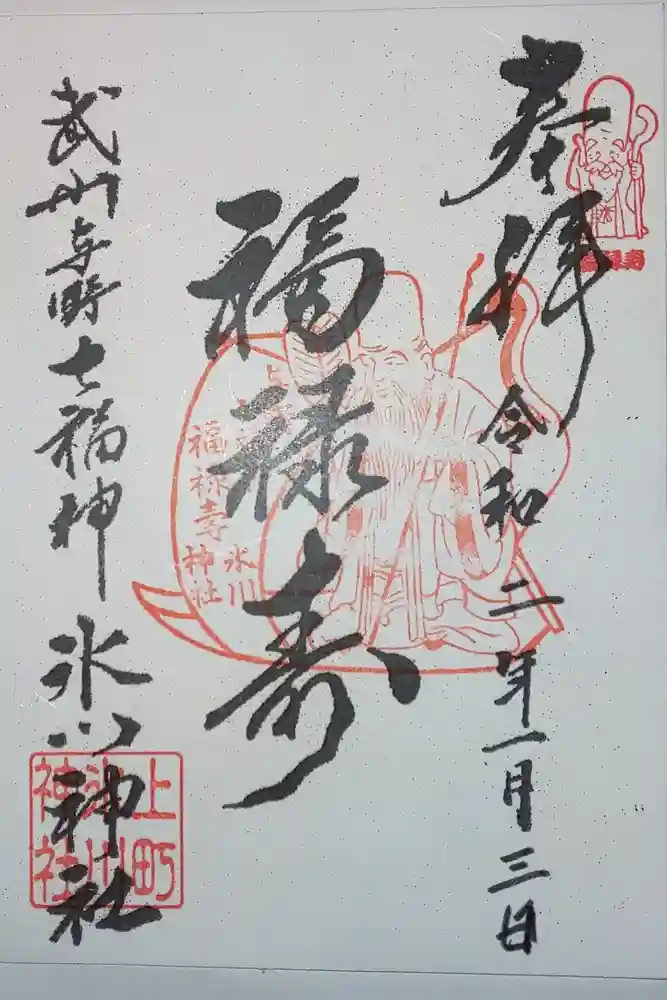 奉拝
令和二年一月三日
福禄寿
武州与野七福神
氷川神社
福禄寿
氷川
神社
上町
氷川
神社